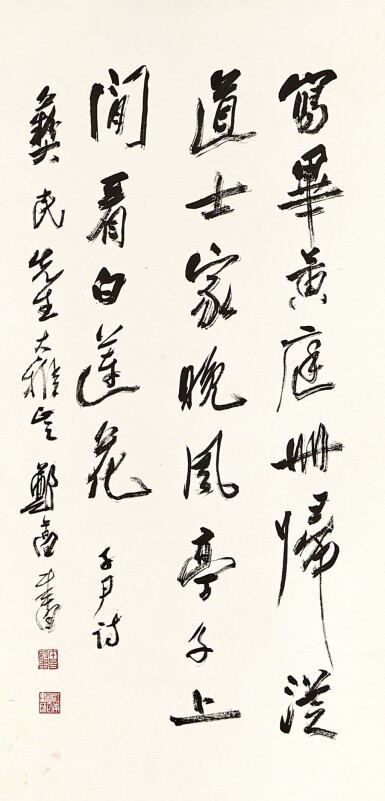 寫畢黃庭冊歸從
道士家晚風亭子上
閒看白蓮花 子尹詩
彝民先生大雅正 鄭